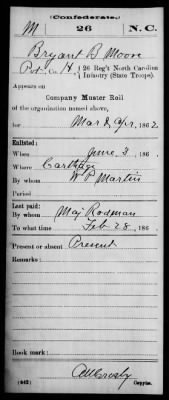 (Confederate.)
M 26 N.C.
Bryant B Moore
Pvt, Co. H, 26 Reg't North Carolina
Infantry (State Troops).
Appears on
Company Muster Roll
of the organization named above,
for Mar & Apr, 1862
Enlisted:
When June 3, 186 .
Where Carthage
By whom W P Martin
Period
Last paid:
By whom Maj Rodman
To what time Feb 28, 186 .
Present or absent Present
Remarks:
Book mark:
(642) Copyist.